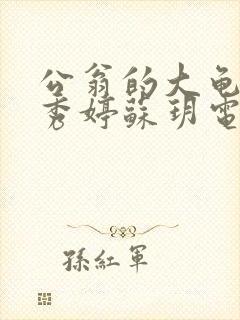 公翁的大龟
秀婷蘇玥電
孫紅軍